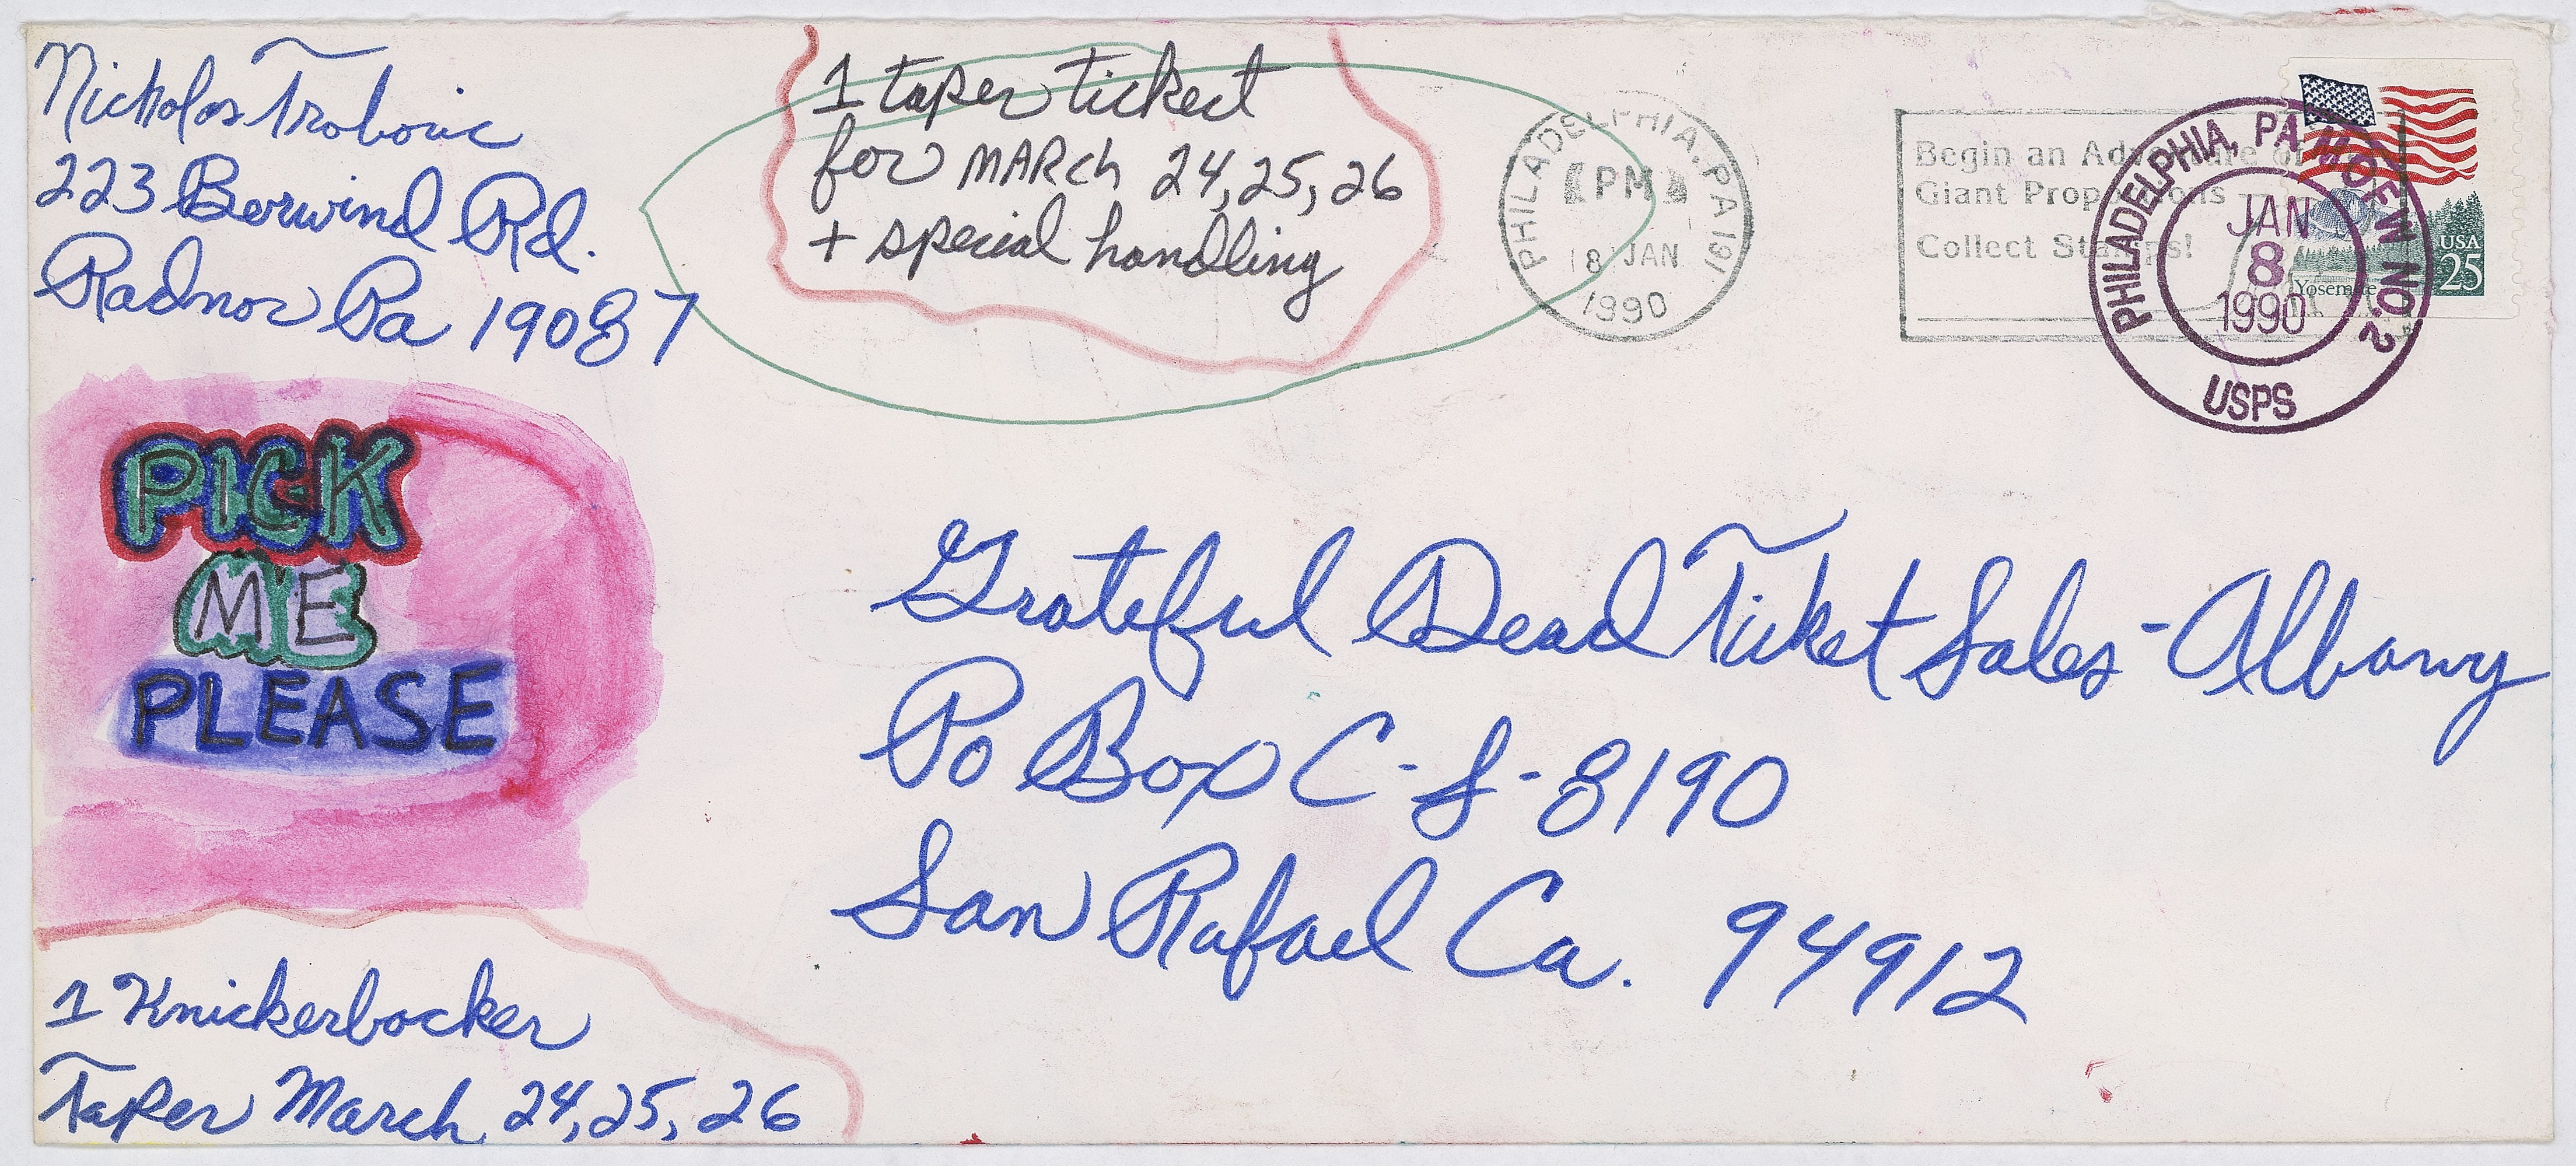 Nicholas Trobovic
223 Berwind Rd.
Radnor Pa 19087
1 taper ticket
for MARCH 24, 25, 26
+ special handling
PHILADELPHIA, PA 191
PM
8 JAN
1990
Begin an Adventure of
Giant Proportions
Collect Stamps!
PHILADELPHIA, PA MOEW NO. 2
JAN
8
1990
USPS
Yosemite
USA
25
PICK
ME
PLEASE
Grateful Dead Ticket Sales - Albany
Po Box C-S-8190
San Rafael Ca. 94912
1 Knickerbocker
Taper March 24, 25, 26